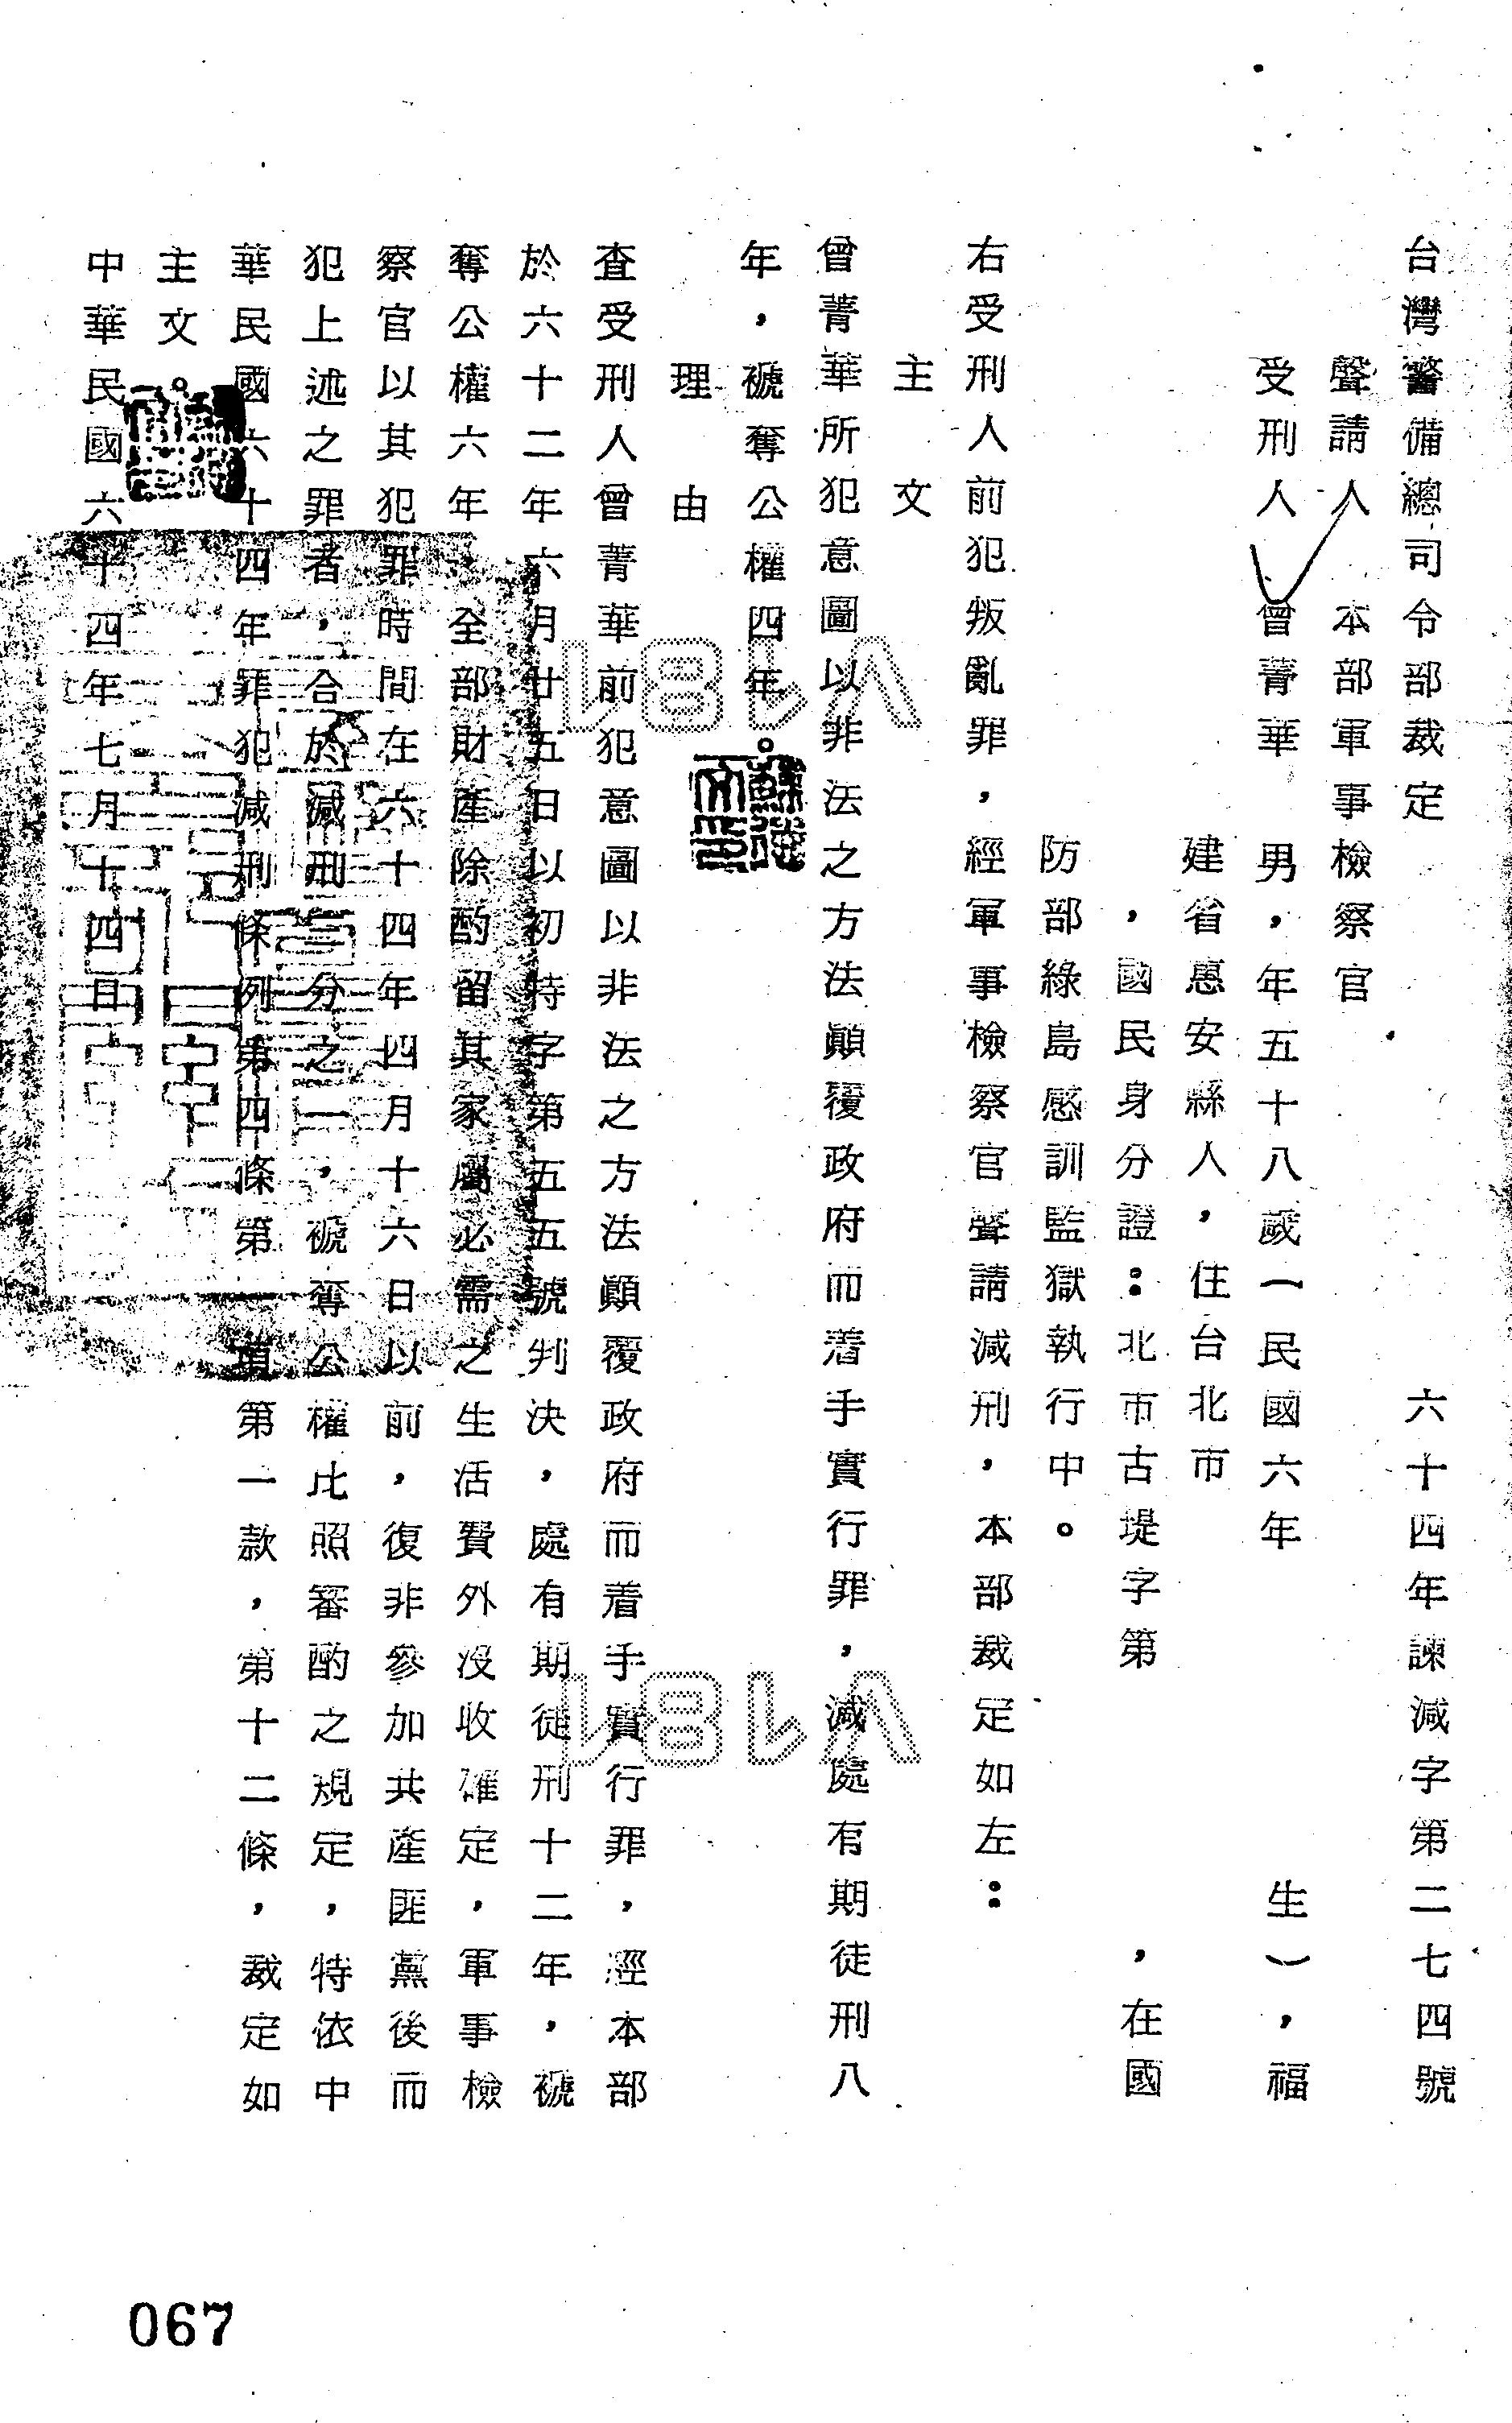 台灣警備總司令部裁定 六十四年諫減字第二七四號
聲請人 本部軍事檢察官
受刑人 曾菁華 男，年五十八歲（民國六年 生），福
建省惠安縣人，住台北市
，國民身分證：北市古堤字第 ，在國
防部綠島感訓監獄執行中。
右受刑人前犯叛亂罪，經軍事檢察官聲請減刑，本部裁定如左：
主文
曾菁華所犯意圖以非法之方法顚覆政府而着手實行罪，減處有期徒刑八
年，褫奪公權四年。
理由
查受刑人曾菁華前犯意圖以非法之方法顚覆政府而着手實行罪，經本部
於六十二年六月廿五日以初特字第五五號判決，處有期徒刑十二年，褫
奪公權六年，全部財產除酌留其家屬必需之生活費外沒收確定，軍事檢
察官以其犯罪時間在六十四年四月十六日以前，復非參加共產匪黨後而
犯上述之罪者，合於減刑三分之一，褫奪公權比照審酌之規定，特依中
華民國六十四年罪犯減刑條例第四條第一項第一款，第十二條，裁定如
主文。
中華民國六十四年七月十四日
V181
V181
067